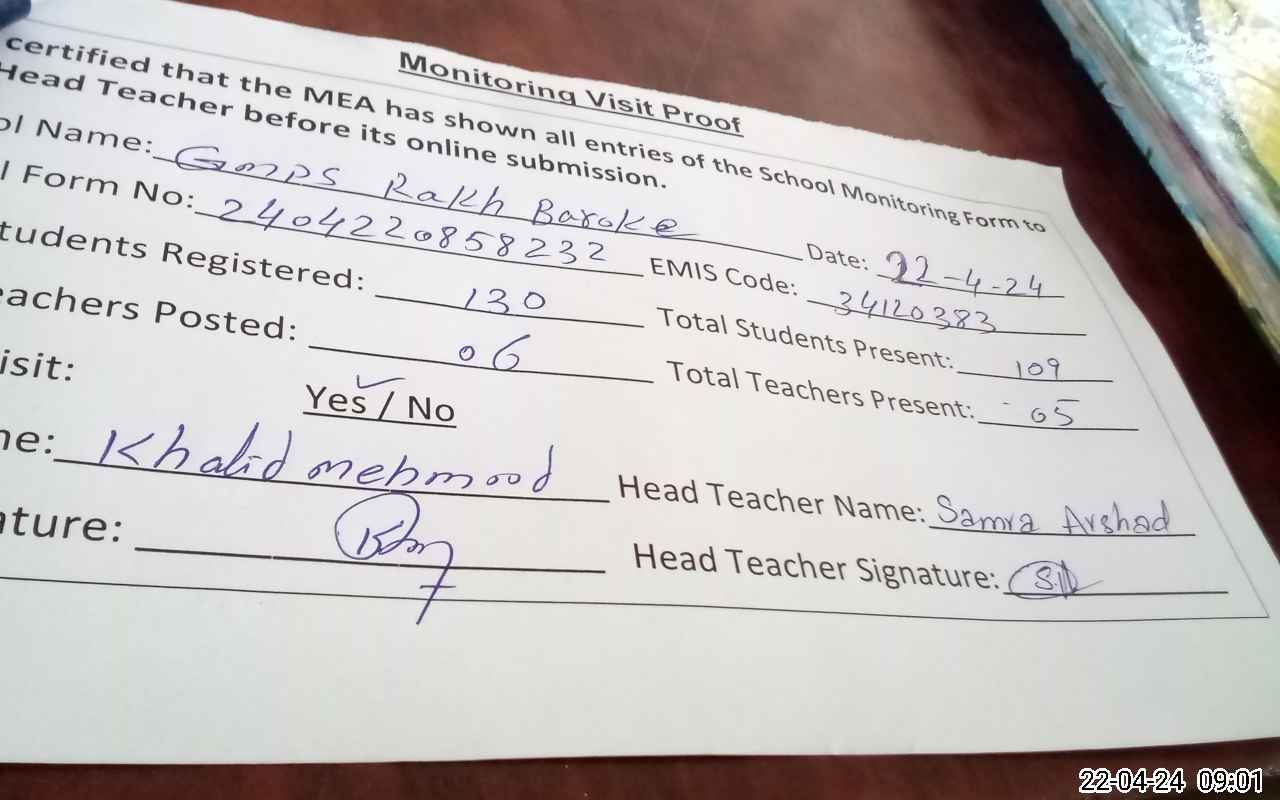 Monitoring Visit Proof
certified that the MEA has shown all entries of the School Monitoring Form to
Head Teacher before its online submission.
ol Name: Gmps Rakh Baroke Date: 22-4-24
l Form No: 2404220858232 EMIS Code: 34120383
tudents Registered: 130 Total Students Present: 109
eachers Posted: 06 Total Teachers Present: 05
isit: Yes / No
ne: Khalid mehmood Head Teacher Name: Samra Arshad
ature: Head Teacher Signature:
22-04-24 09:01